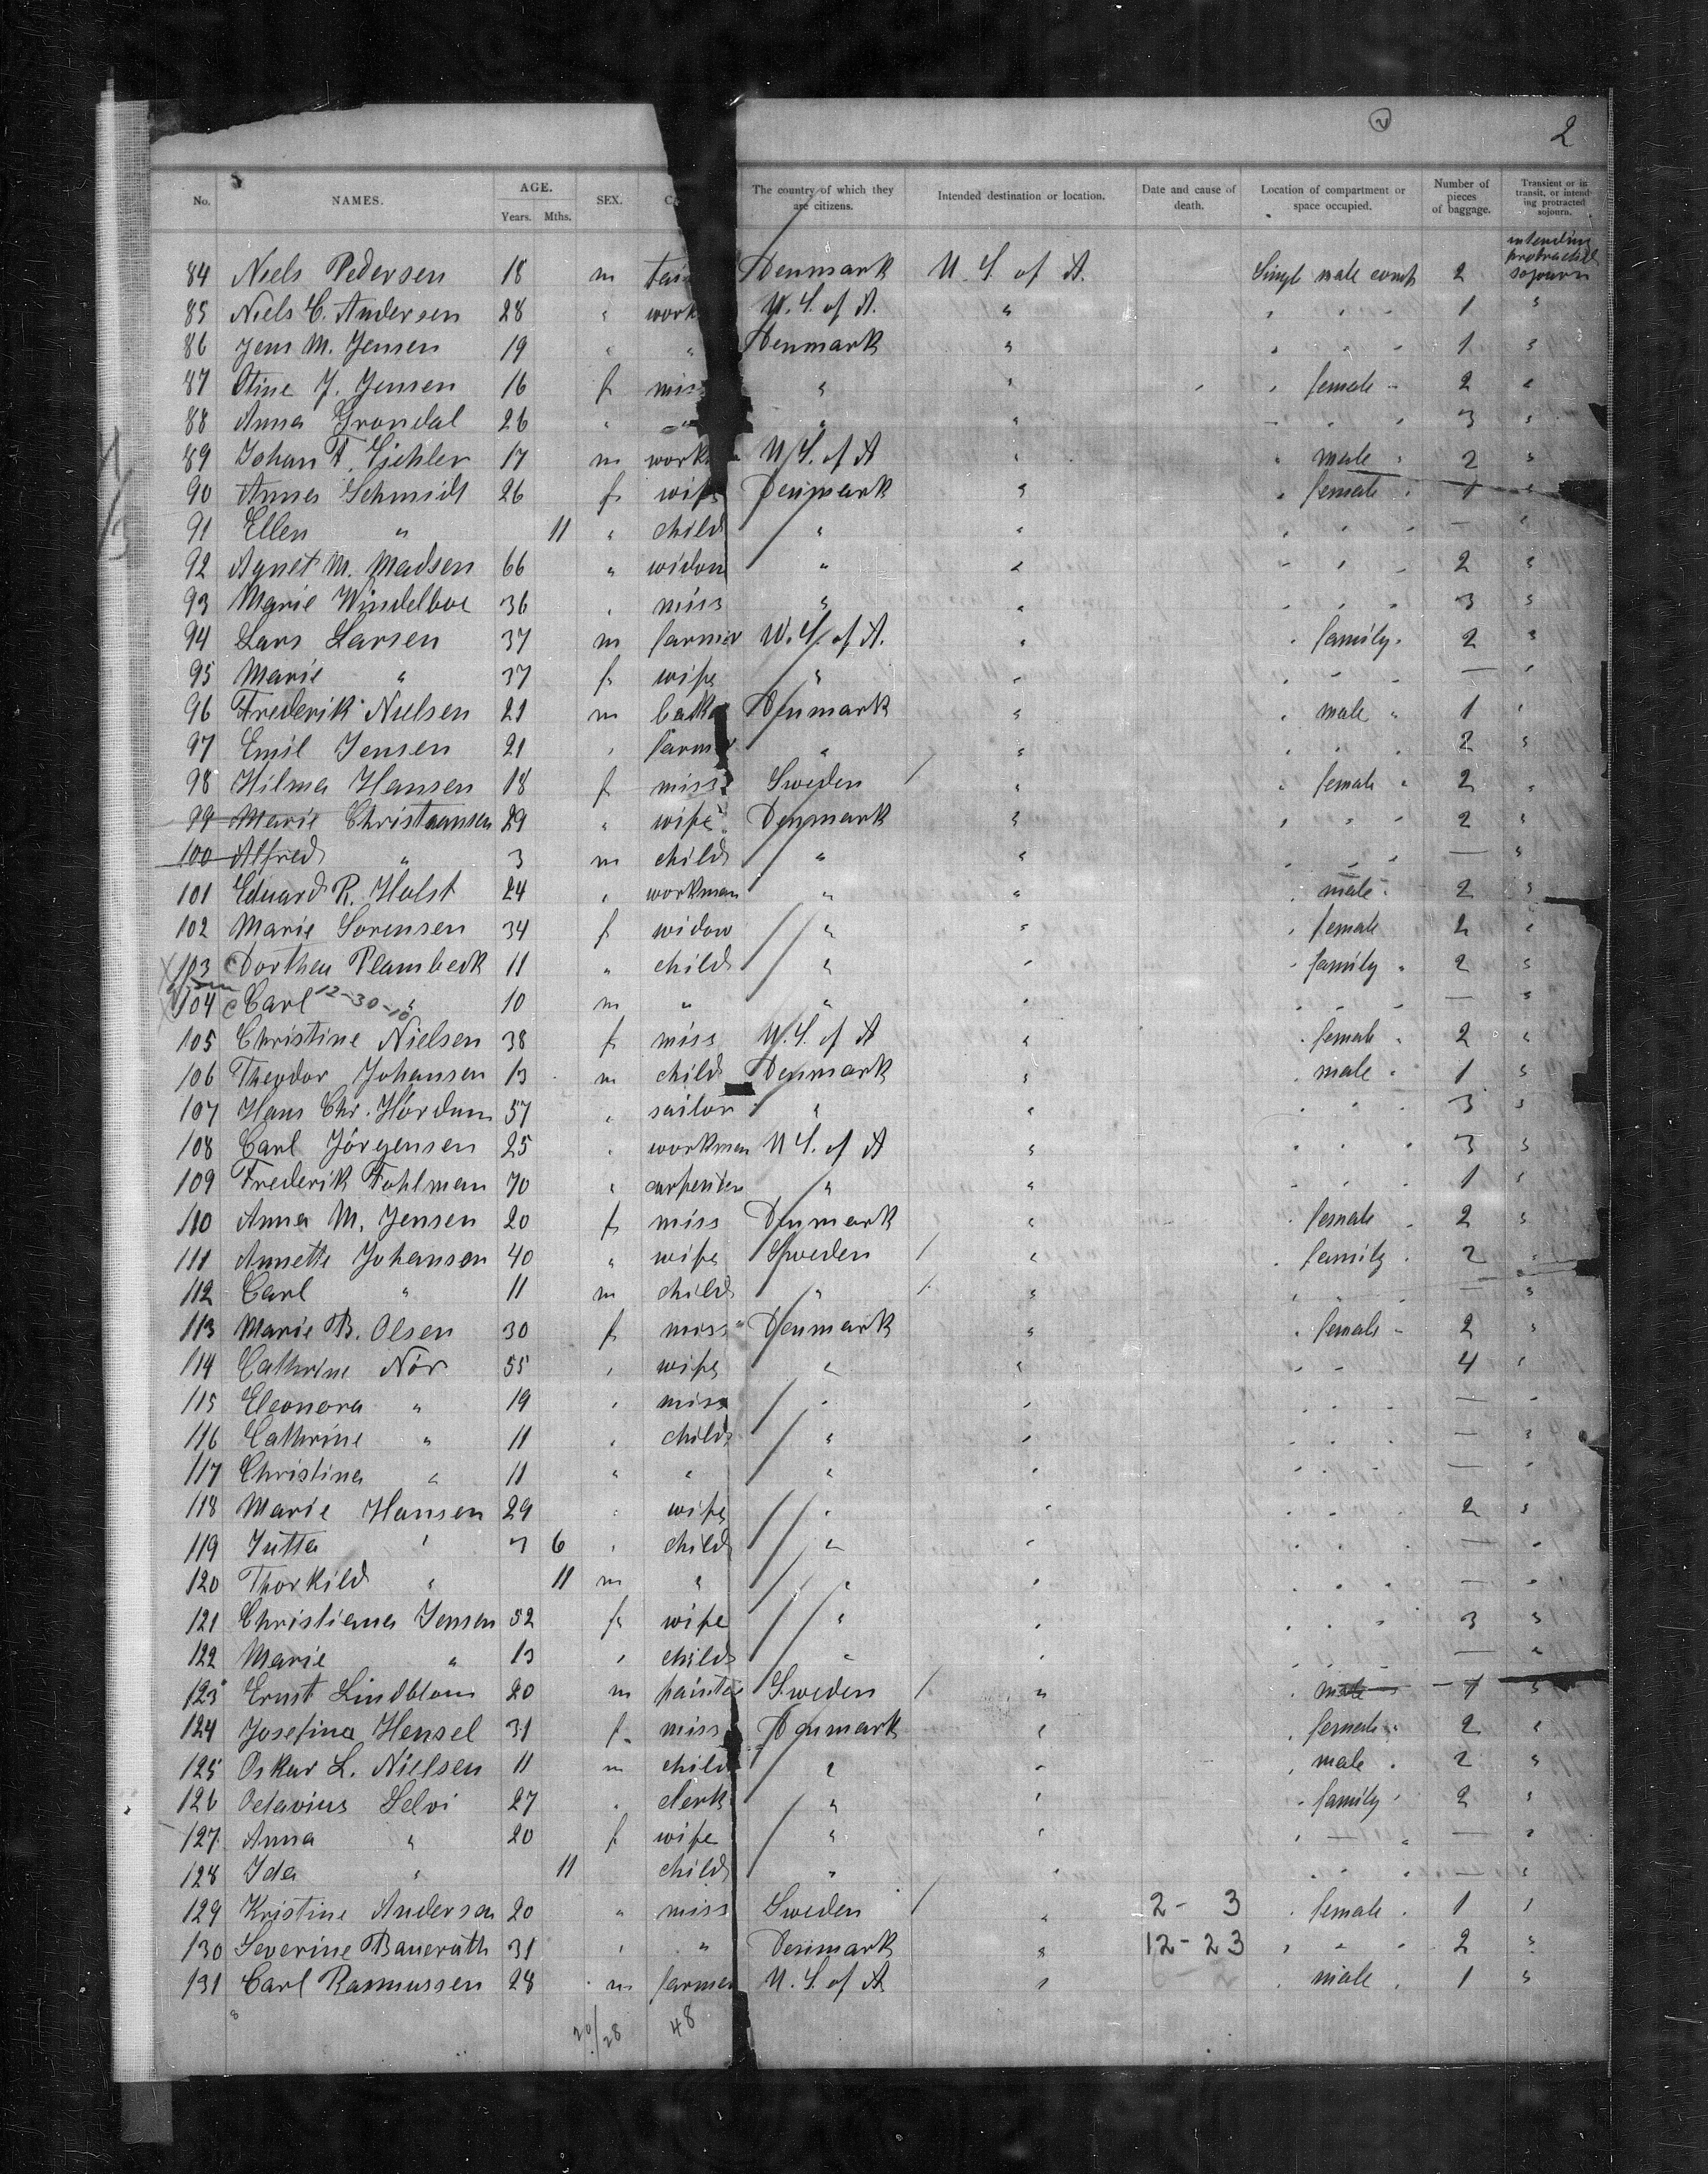 2
2
No. NAMES. AGE. Years. Mths. SEX. The country of which they are citizens. Intended destination or location. Date and cause of death. Location of compartment or space occupied. Number of pieces of baggage. Transient or in transit, or intending protracted sojourn.
intending protracted
84 Niels Pedersen 18 m Denmark U. S. of A. Single male comp 2 sojourn
85 Niels C. Andersen 28 " work U. S. of A. " " " " 1 "
86 Jens M. Jensen 19 " " Denmark " " " " 1 "
87 Stine J. Jensen 16 f miss " " " female " 2 "
88 Anna Grondal 26 " " " " " " " 3 "
89 Johan F. Eichler 17 m work U. S. of A " " male " 2 "
90 Anna Schmidt 26 f wife Denmark " " female " 1 "
91 Ellen " 11 " child " " " " " — "
92 Agnet M. Madsen 66 " widow " " " " " 2 "
93 Marie Windelboe 36 " miss " " " " " 3 "
94 Lars Larsen 37 m farmer U. S. of A. " " family " 2 "
95 Marie " 37 f wife " " " " " — "
96 Frederik Nielsen 21 m bake Denmark " " male " 1 "
97 Emil Jensen 21 " farmer " " " " " 2 "
98 Hilma Hansen 18 f miss Sweden / " " female " 2 "
99 Marie Christiansen 29 " wife Denmark " " " " 2 "
100 Alfred " 3 m child " " " " " — "
101 Eduard R. Holst 24 " workman " " " male " 2 "
102 Marie Sorensen 34 f widow " " " female 2 "
103 Dorthea Plambeck 11 " child " " " family " 2 "
104 Carl 12-30-10 " 10 m " " " " " " — "
105 Christine Nielsen 38 f miss U. S. of A " " female " 2 "
106 Theodor Johansen 13 m child Denmark " " male " 1 "
107 Hans Chr. Hördum 57 " sailor " " " " " 3 "
108 Carl Jörgensen 25 " workman U. S. of A " " " " 3 "
109 Frederik Fohlman 70 " carpenter " " " " " 1 "
110 Anna M. Jensen 20 f miss Denmark " " female " 2 "
111 Annette Johanson 40 " wife Sweden / " " family " 2 "
112 Carl " 11 m child " / " " " " — "
113 Marie B. Olsen 30 f miss Denmark " " female " 2 "
114 Cathrine Nör 55 " wife " " " " 4 "
115 Eleonora " 19 " miss " " " " " — "
116 Cathrine " 11 " child " " " " " — "
117 Christina " 11 " " " " " " " — "
118 Marie Hansen 29 " wife " " " " " 2 "
119 Jutta " 7 6 " child " " " " " — "
120 Thorkild " 11 m " " " " " " — "
121 Christiana Jensen 52 f wife " " " " " 3 "
122 Marie " 13 " child " " " " " — "
123 Ernst Lindblom 20 m painter Sweden / " " male 1 "
124 Josefina Hensel 31 f miss Denmark " " female " 2 "
125 Oskar L. Nielsen 11 m child " " " male " 2 "
126 Octavius Selvi 27 " clerk " " " family " 2 "
127 Anna " 20 f wife " " " " " — "
128 Ida " 11 child " " " " " — "
129 Kristine Anderson 20 " miss Sweden / " 2 - 3 " female " 1 "
130 Severine Baueruth 31 " " Denmark " 12 - 23 " " " 2 "
131 Carl Rasmussen 28 m farmer U. S. of A " " male " 1 "
20/28 48